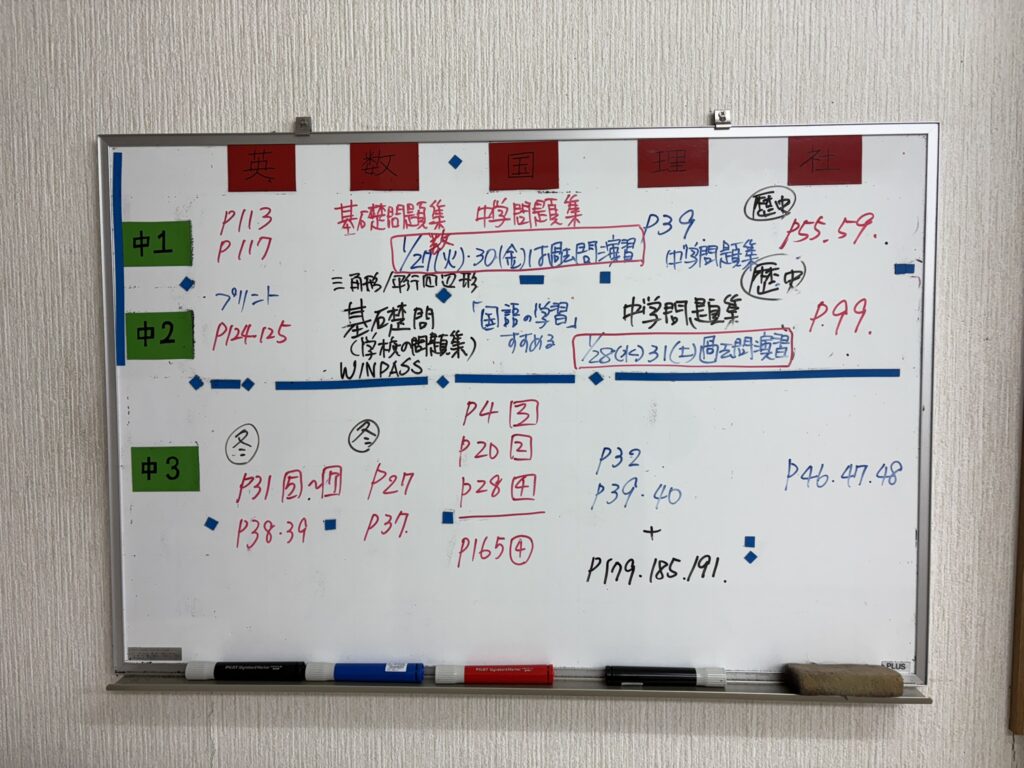 英 数 国 理 社
中1
P113
P117
基礎問題集 中学問題集
数
1/27(火)・30(金)は過去問演習
P39
中学問題集
歴史
P55.59.
中2
プリント
P124.125
三角形/平行四辺形
基礎問
(学校の問題集)
WINPASS
「国語の学習」
すすめる
中学問題集
1/28(水)31(土)過去問演習
歴史
P.99.
中3
冬
P31 5~7
P38.39
冬
P27
P37.
P4 3
P20 2
P28 4
P165 4
P32
P39.40
+
P179.185.191.
P46.47.48
PILOT
PILOT
PLUS